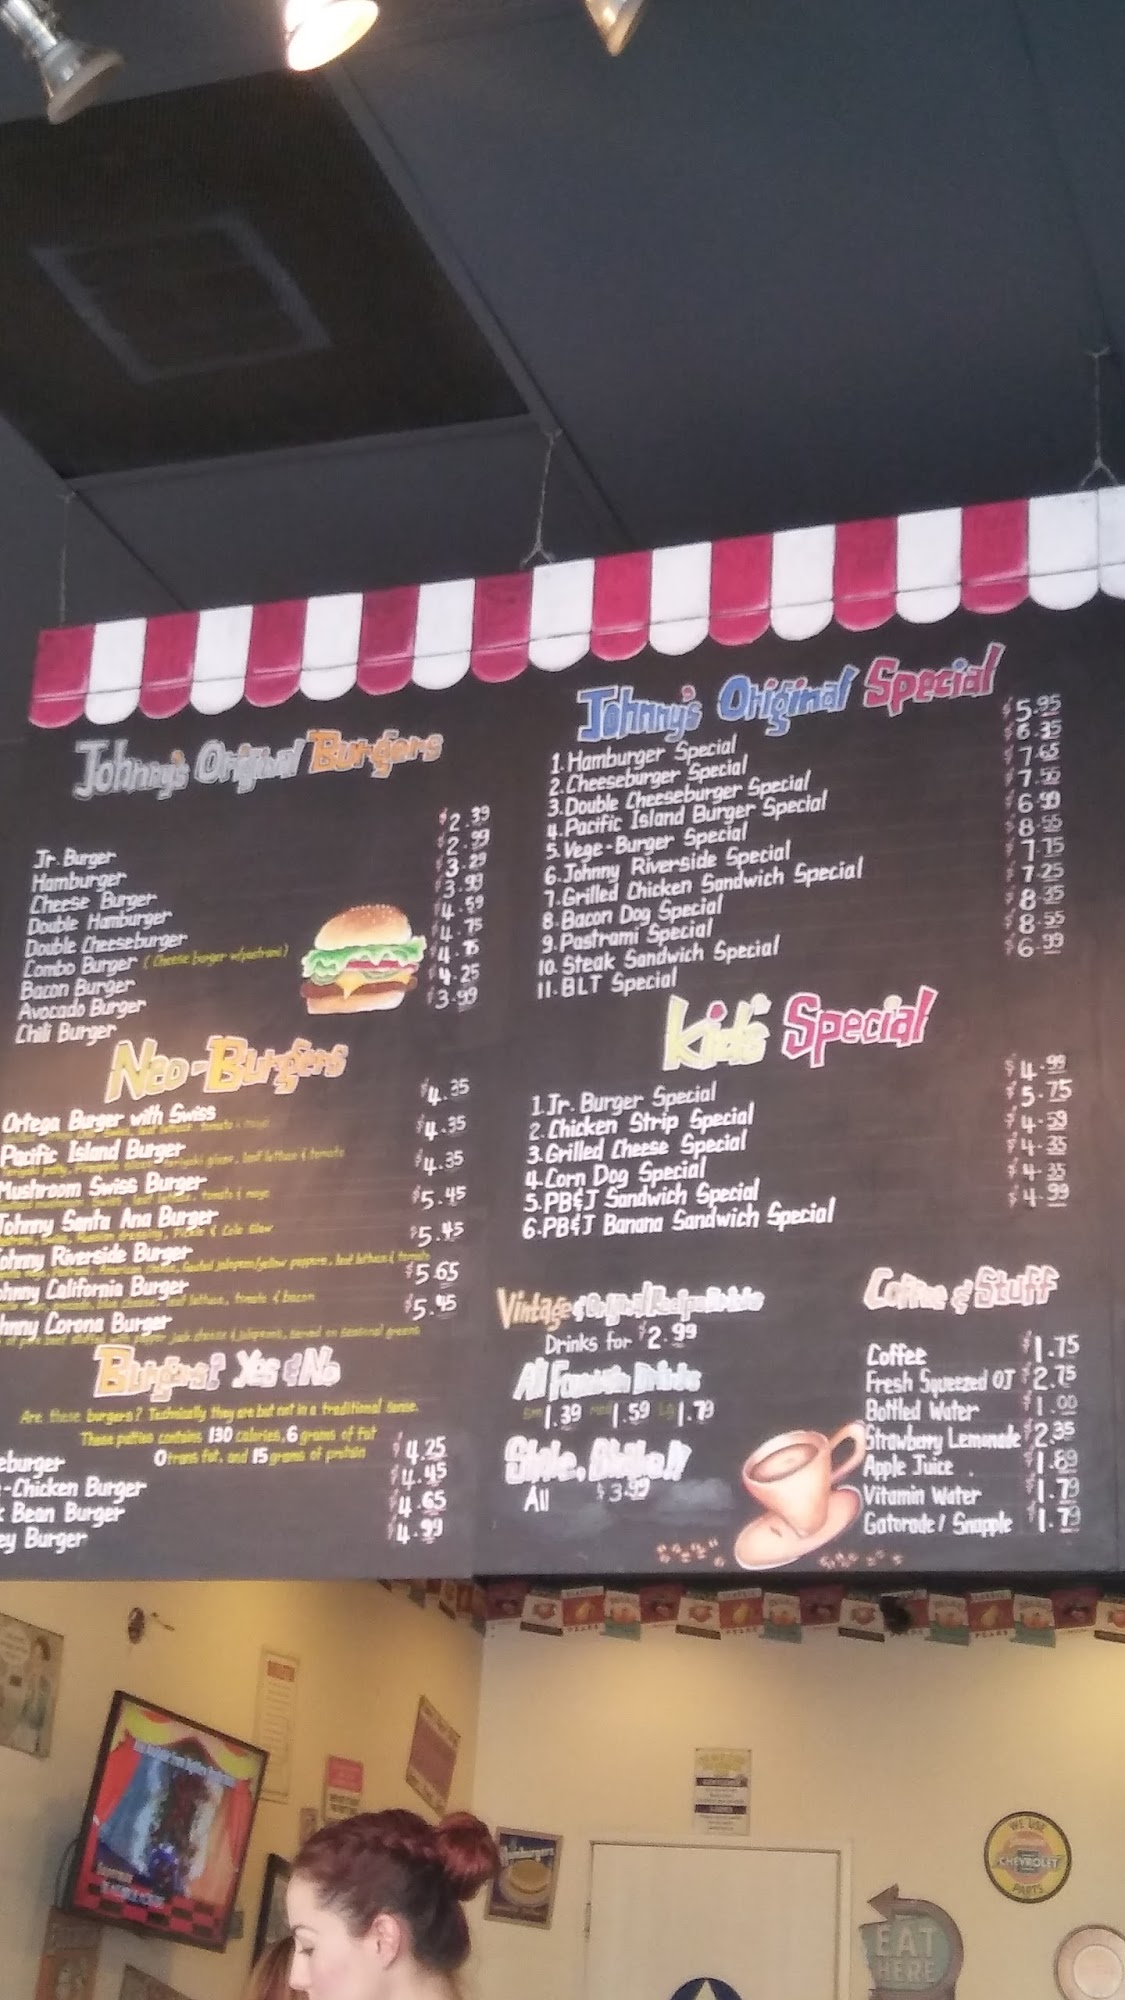 Johnny's Original Burgers
Jr. Burger $2.39
Hamburger $2.99
Cheese Burger $3.29
Double Hamburger $3.99
Double Cheeseburger $4.59
Combo Burger (Cheese burger w/pastrami) $4.75
Bacon Burger $4.75
Avocado Burger $4.25
Chili Burger $3.99
Neo-Burgers
Ortega Burger with Swiss $4.35
Pacific Island Burger $4.35
Mushroom Swiss Burger $4.35
Johnny Santa Ana Burger $5.45
ohnny Riverside Burger $5.45
hnny California Burger $5.65
hnny Corona Burger $5.45
Burgers? Yes & No
Are these burgers? Technically they are but not in a traditional sense.
These patties contains 130 calories, 6 grams of fat
0 trans fat, and 15 grams of protein
eburger $4.25
-Chicken Burger $4.45
Bean Burger $4.65
ey Burger $4.99
Johnny's Original Special
1. Hamburger Special $5.95
2. Cheeseburger Special $6.35
3. Double Cheeseburger Special $7.65
4. Pacific Island Burger Special $7.55
5. Vege-Burger Special $6.90
6. Johnny Riverside Special $8.55
7. Grilled Chicken Sandwich Special $7.75
8. Bacon Dog Special $7.25
9. Pastrami Special $8.35
10. Steak Sandwich Special $8.55
11. BLT Special $6.99
Kids' Special
1. Jr. Burger Special $4.99
2. Chicken Strip Special $5.75
3. Grilled Cheese Special $4.59
4. Corn Dog Special $4.35
5. PB&J Sandwich Special $4.35
6. PB&J Banana Sandwich Special $4.99
Vintage & Original Recipe Drinks
Drinks for $2.99
All Fountain Drinks
Sm 1.39 Med 1.59 Lg 1.79
All $3.99
Coffee & Stuff
Coffee $1.75
Fresh Squeezed OJ $2.75
Bottled Water $1.00
Strawberry Lemonade $2.35
Apple Juice $1.89
Vitamin Water $1.79
Gatorade / Snapple $1.79
WE USE
CHEVROLET
PARTS
EAT
HERE